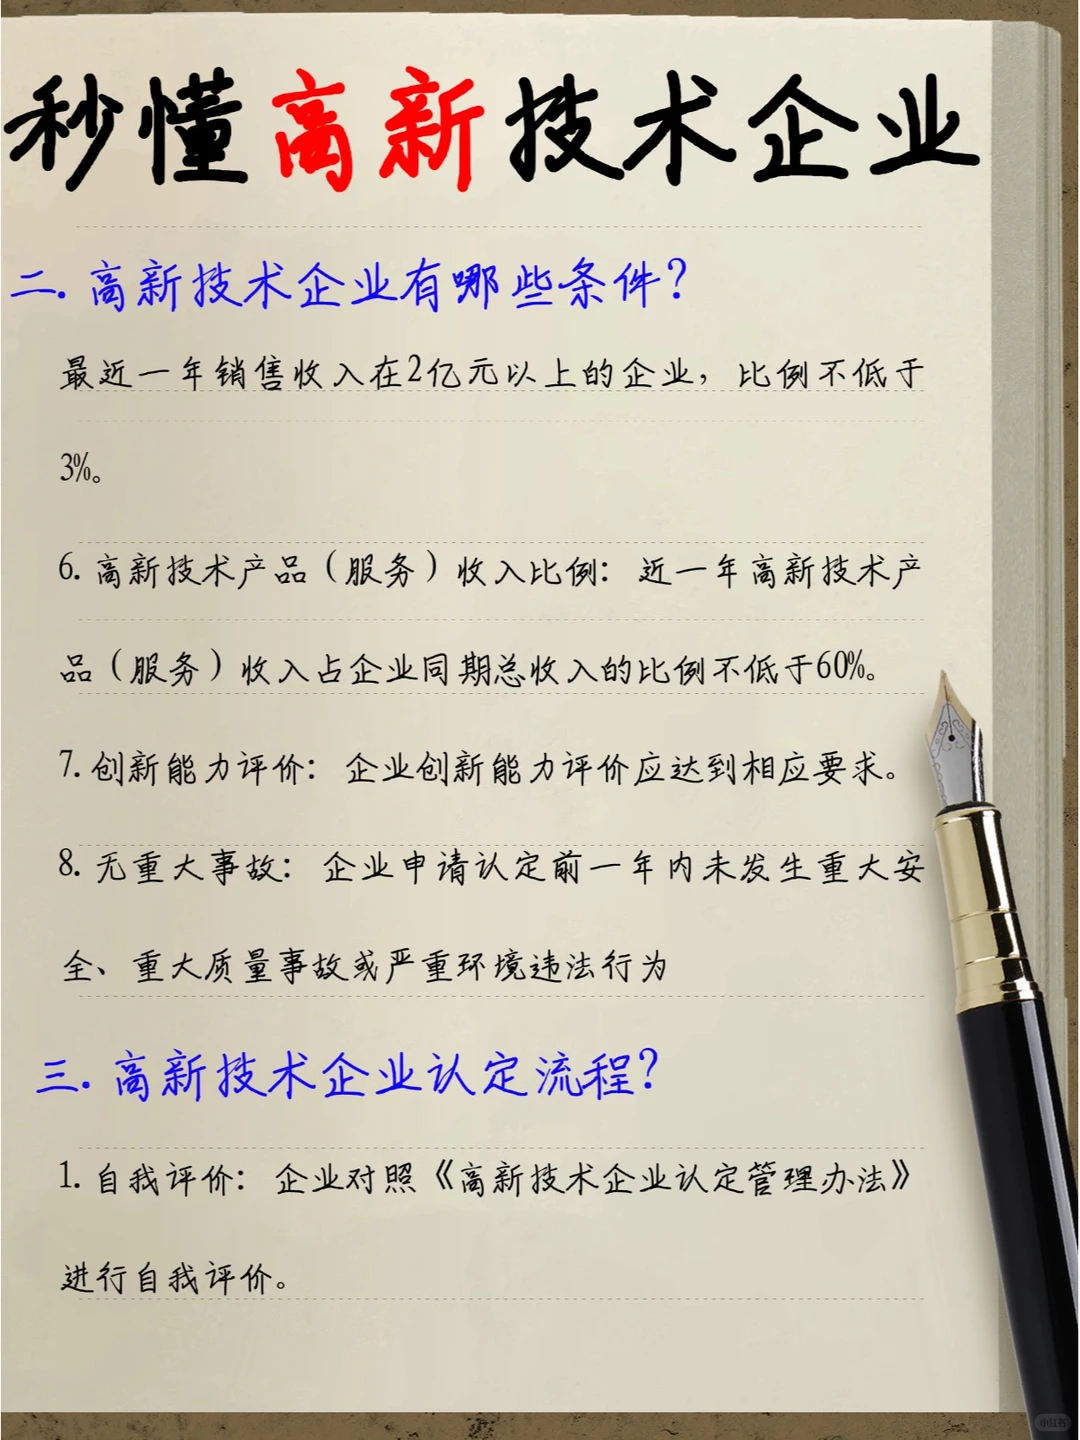 秒懂高新技术企业
二. 高新技术企业有哪些条件?
最近一年销售收入在2亿元以上的企业，比例不低于
3%。
6. 高新技术产品（服务）收入比例：近一年高新技术产
品（服务）收入占企业同期总收入的比例不低于60%。
7. 创新能力评价：企业创新能力评价应达到相应要求。
8. 无重大事故：企业申请认定前一年内未发生重大安
全、重大质量事故或严重环境违法行为
三. 高新技术企业认定流程?
1. 自我评价：企业对照《高新技术企业认定管理办法》
进行自我评价。
小红书